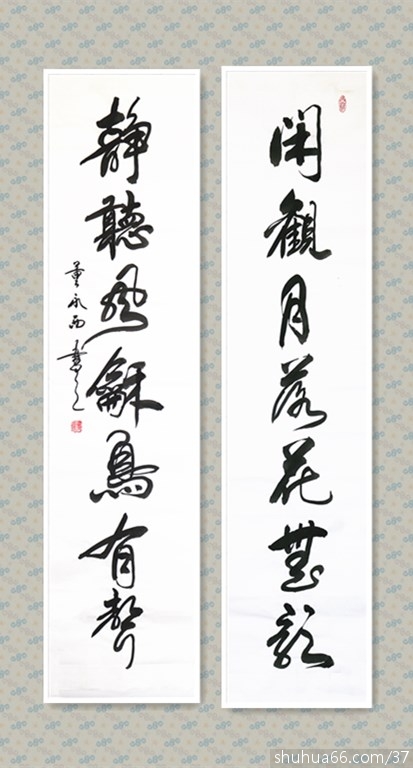 閑觀月落花無語
静聽風龢鳥有聲
董永西書之
shuhua66.com/37